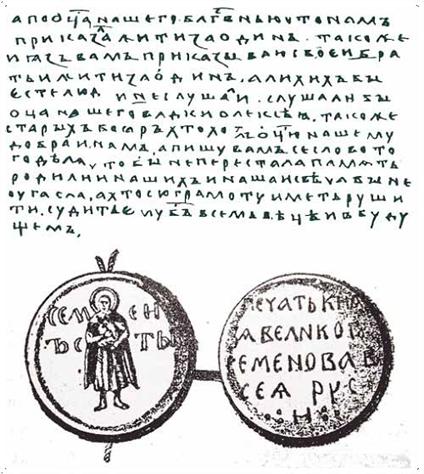 А ПО ѠЦА НАШЕГО БЛГВ҃НЬЮ ЧТО НАМЪ
ПРИКАЗАЛЪ ЖИТИ ЗАОДИНЪ. ТАКОЖЕ
И ІАЗЪ ВАМЪ ПРИКАЗЫВАЮ СВОЕИ БРА
ТЬИ ЖИТИ ЗАОДИНЪ, А ЛИХИХЪ БЫ
ЕСТЕ ЛЮД И НЕ СЛУШАЛИ. СЛУШАЛИ БЫ
ОЦА НАШЕГО ВЛДКИ ОЛЕКСѢЯ, ТАКОЖЕ
СТАРЫХЪ БОЯРЪ ХТО ХО ЪОЦЮ НАШЕМУ
ДОБРА И НАМ, А ПИШУ ВАМЪ СЕ СЛОВО ТО
ГО ДѢЛѦ, ЧТО БЫ НЕ ПЕРЕСТАЛА ПАМѦТЬ
РОДИ НАШИХЪ И НАША И СВѢЧА БЫ НЕ
ОУГАСЛА, А ХТО СЮ ГРАМОТУ ИМЕТЬ РУШИ
ТИ, СУДИТЬ ЕМУ БЪ В СЕМЬ ВѢЦѢ И В БУДУ
ЩЕМЬ,
СЕМ ЕН
ЪС ТЫ
ПЕУАТЬ КНѦ
ѦВЕЛИКОГ
ЕМЕНОВАВ
СЕѦ РУС
И